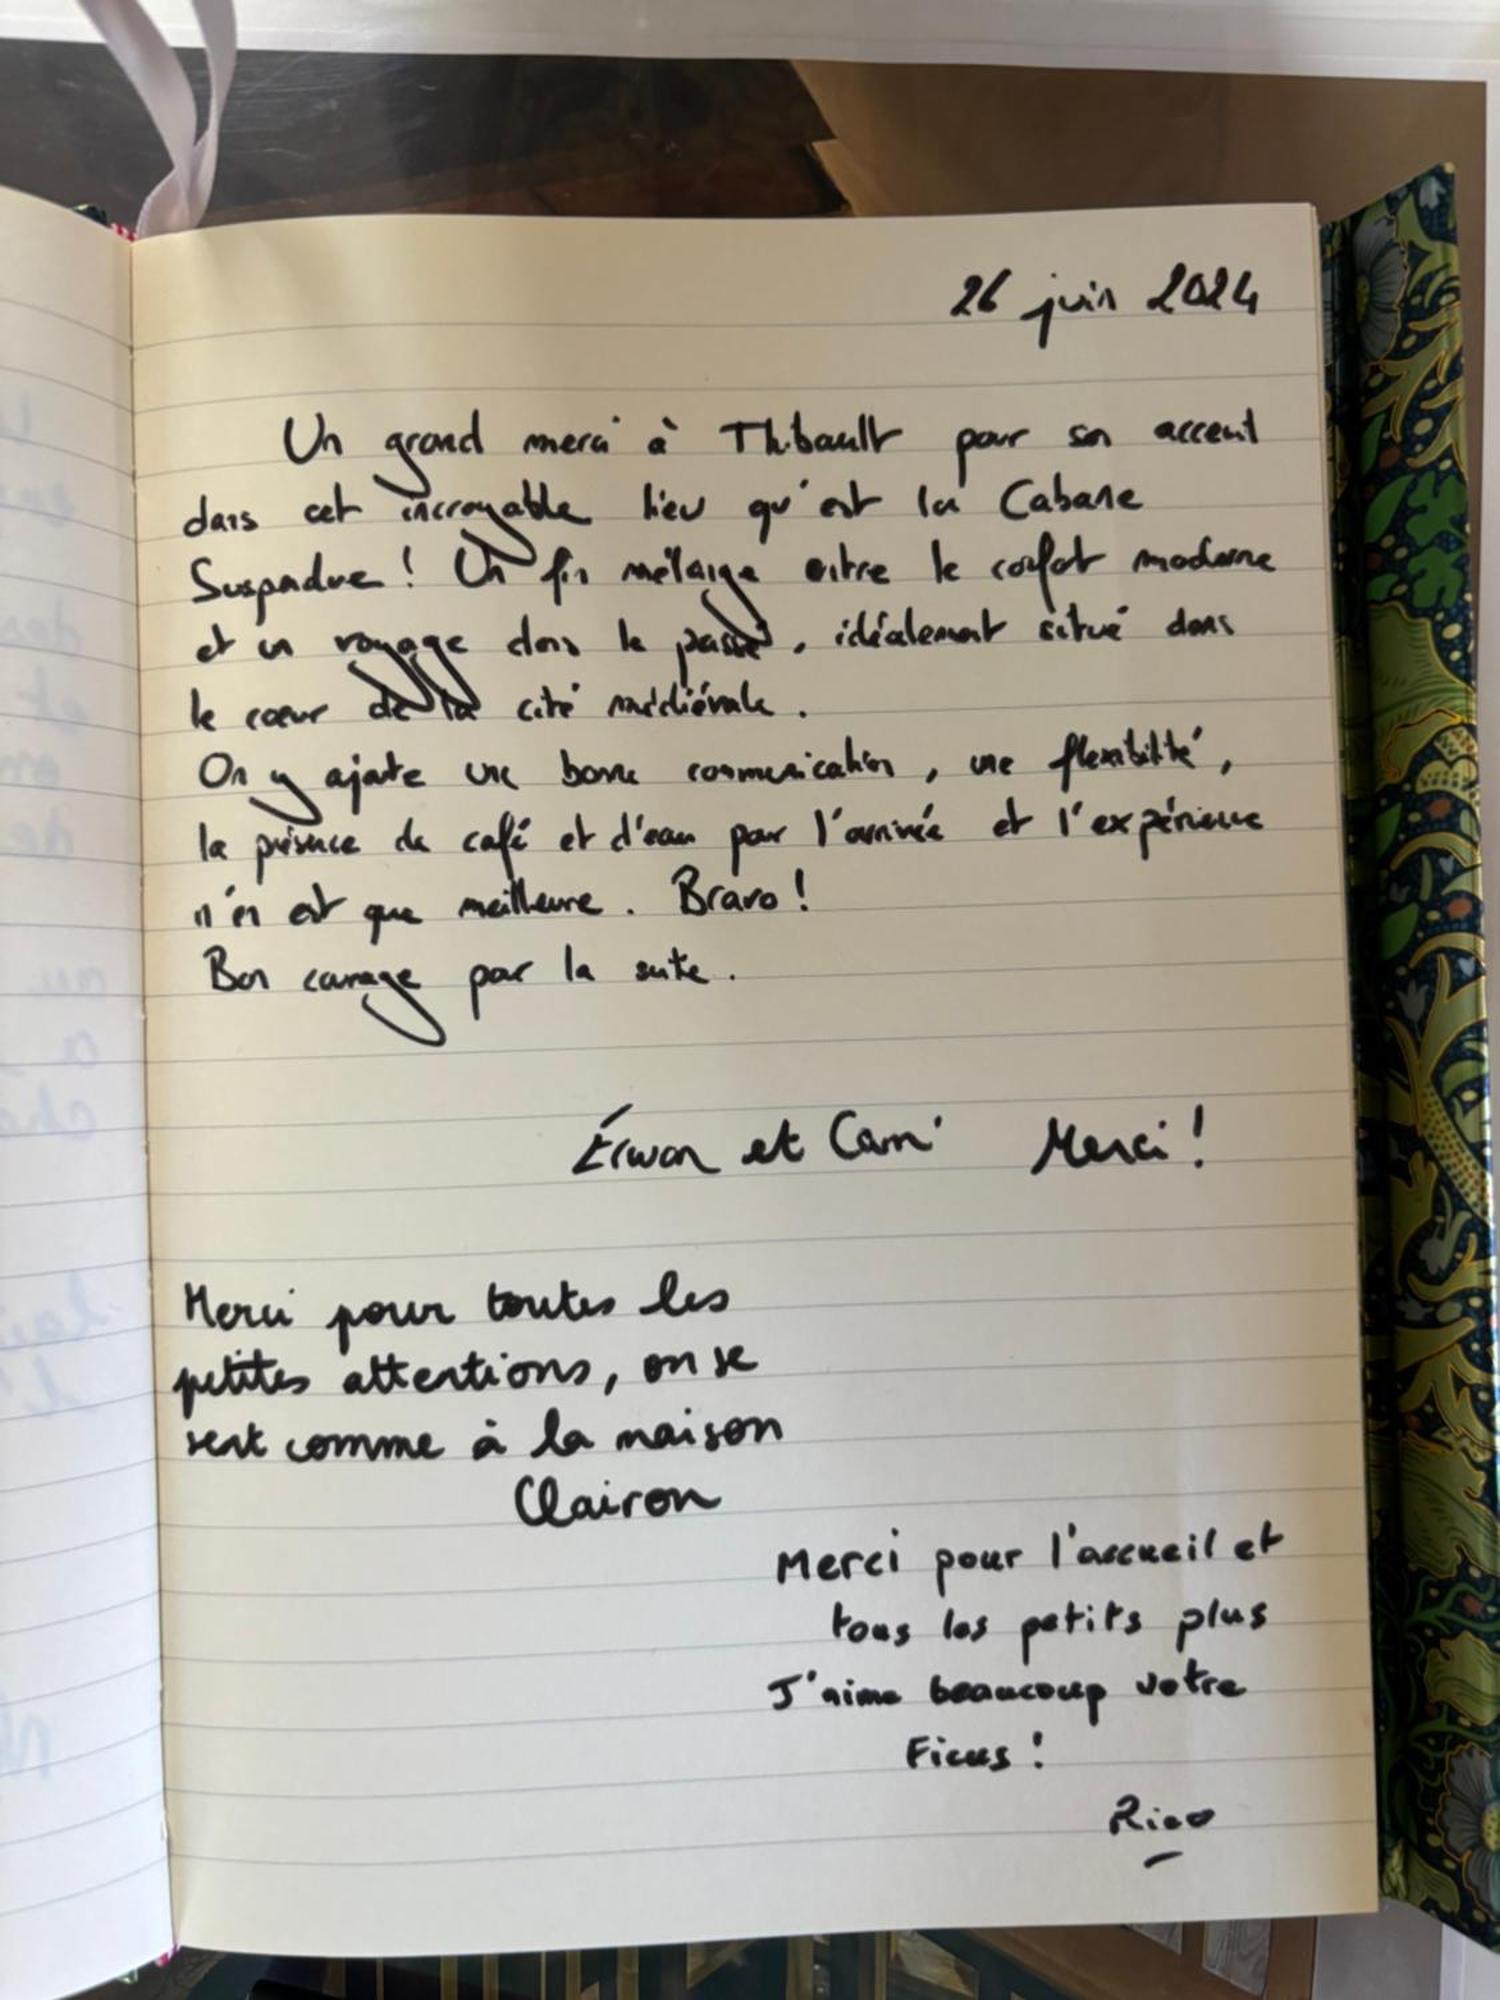 26 juin 2024
Un grand merci à Thibault pour son accueil
dans cet incroyable lieu qu'est la Cabane
Suspendue ! Un fin mélange entre le confort moderne
et un voyage dans le passé, idéalement situé dans
le cœur de la cité médiévale.
On y ajoute une bonne communication, une flexibilité,
la présence de café et d'eau pour l'arrivée et l'expérience
n'en est que meilleure. Bravo !
Bon courage pour la suite.
et Merci !
Merci pour toutes les
petites attentions, on se
sent comme à la maison
Clairon
Merci pour l'accueil et
tous les petits plus
J'aime beaucoup votre
Ficus !
Rico